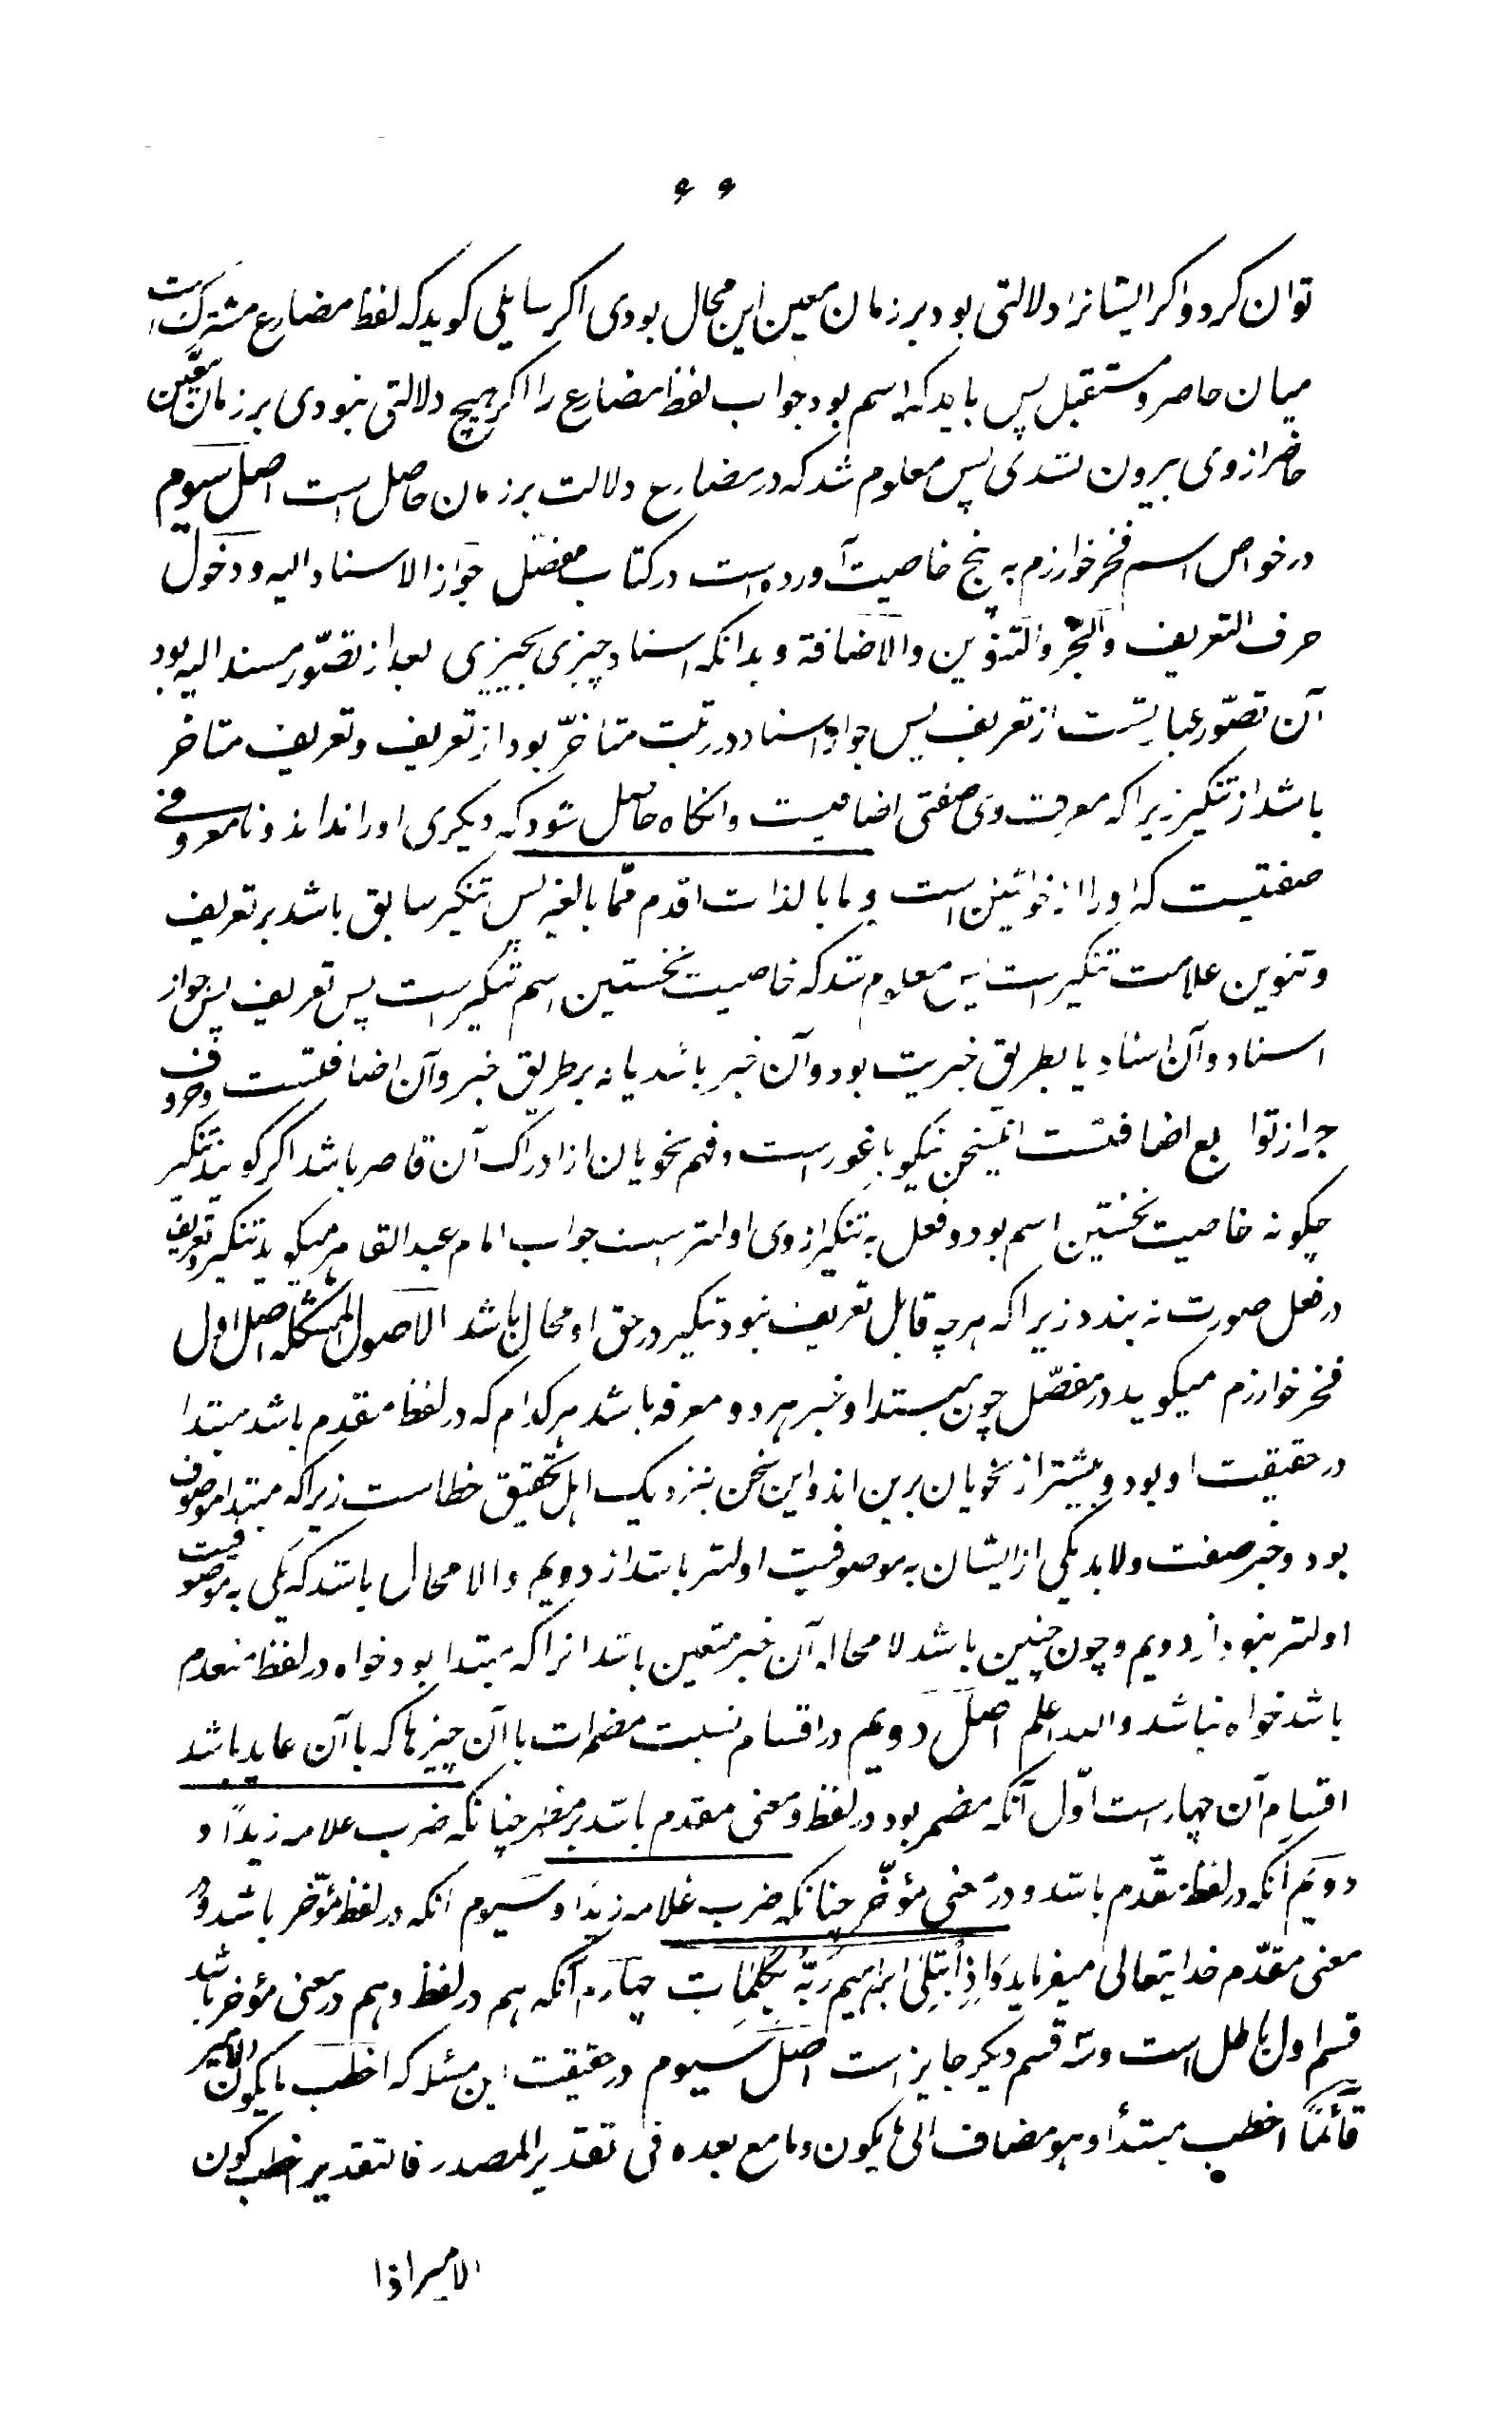 ۶۶
توان کرد و اکر ایشانرا دلالتی بود بر زمان معین این محال بودی اکر سایلی کوید که لفظ مضارع مشترک است
میان حاضر و مستقبل پس باید که اسم بود جواب لفظ مضارع را اکر هیچ دلالتی نبودی بر زمان معیّن
حاضر از وی بیرون نشدی پس معلوم شد که در مضارع دلالت بر زمان حاصل است اصل سیوم
در خواص اسم فخر خوارزم به پنج خاصیت آورده است در کتاب مفصّل جواز الاسناد الیه و دخول
حرف التعریف والجرّ والتنوین والاضافة و بدانکه اسناد چیزی بچیزی بعد از تصوّر مسند الیه بود
آن تصوّر عبارتست از تعریف پس جواز اسناد در رتبت متاخّر بود از تعریف و تعریف متاخر
باشد از تنکیر زیرا که معرفت وی صفتی اضافیست و انکاه حاصل شود که دیکری او را نداند و نامعروفی
صفتیست که او را از خویشتن است و ما بالذات اقدم ممّا بالغیر پس تنکیر سابق باشد بر تعریف
و تنوین علامت تنکیر است پس معلوم شد که خاصیت نخستین اسم تنکیر است پس تعریف پس جواز
اسناد و آن اسناد یا بطریق خبریت بود و آن خبر باشد یا نه بر طریق خبر و آن اضافتست و حروف
جر از توابع اضافتست اینسخن نیکو با غور است و فهم نحویان از ادراک آن قاصر باشد اکر کویند تنکیر
چکونه خاصیت نخستین اسم بود و فعل به تنکیر از وی اولیتر است جواب امام عبد القاهر میکوید تنکیر و تعریف
در فعل صورت نه بندد زیرا که هر چه قابل تعریف نبود تنکیر در حق او محال باشد الاصول المشکله اصل اول
فخر خوارزم میکوید در مفصّل چون مبتدا و خبر هر دو معرفه باشد هر کدام که در لفظ مقدم باشد مبتدا
در حقیقت او بود و بیشتر از نحویان برین اند و این سخن بنزدیک اهل تحقیق خطاست زیرا که مبتدا موصوف
بود و خبر صفت ولابد یکی از ایشان به موصوفیت اولیتر باشد از دویم والا محال باشد که یکی به موصوفیت
اولیتر نبود از دویم و چون چنین باشد لا محاله آن خبر متعین باشد انرا که مبتدا بود خواه در لفظ مقدم
باشد خواه نباشد والله اعلم اصل دویم در اقسام نسبت مضمرات با آن چیزها که با آن عاید باشد
اقسام آن چهار است اوّل آنکه مضمر بود در لفظ و معنی مقدم باشد بر مظهر چنانکه ضرب غلامه زیدًا و
دویم آنکه در لفظ مقدّم باشد و در معنی مؤخّر چنانکه ضرب غلامه زیدا و سیوم انکه در لفظ مؤخّر باشد و در
معنی مقدّم خدا یتعالی میفرماید وَاِذِ ابْتَلی ابراهیم رَبُّهُ بِکَلِماتٍ چهارم آنکه هم در لفظ و هم در معنی مؤخر باشد
قسم اول باطل است و سه قسم دیکر جایز است اصل سیوم در حقیقت این مسئله که اخطب ما یکون الامیر
قائمًا اخطب مبتدأ و هو مضاف الی ما یکون و ما مع بعده فی تقدیر المصدر فالتقدیر اخطب کون
الامیر اذا